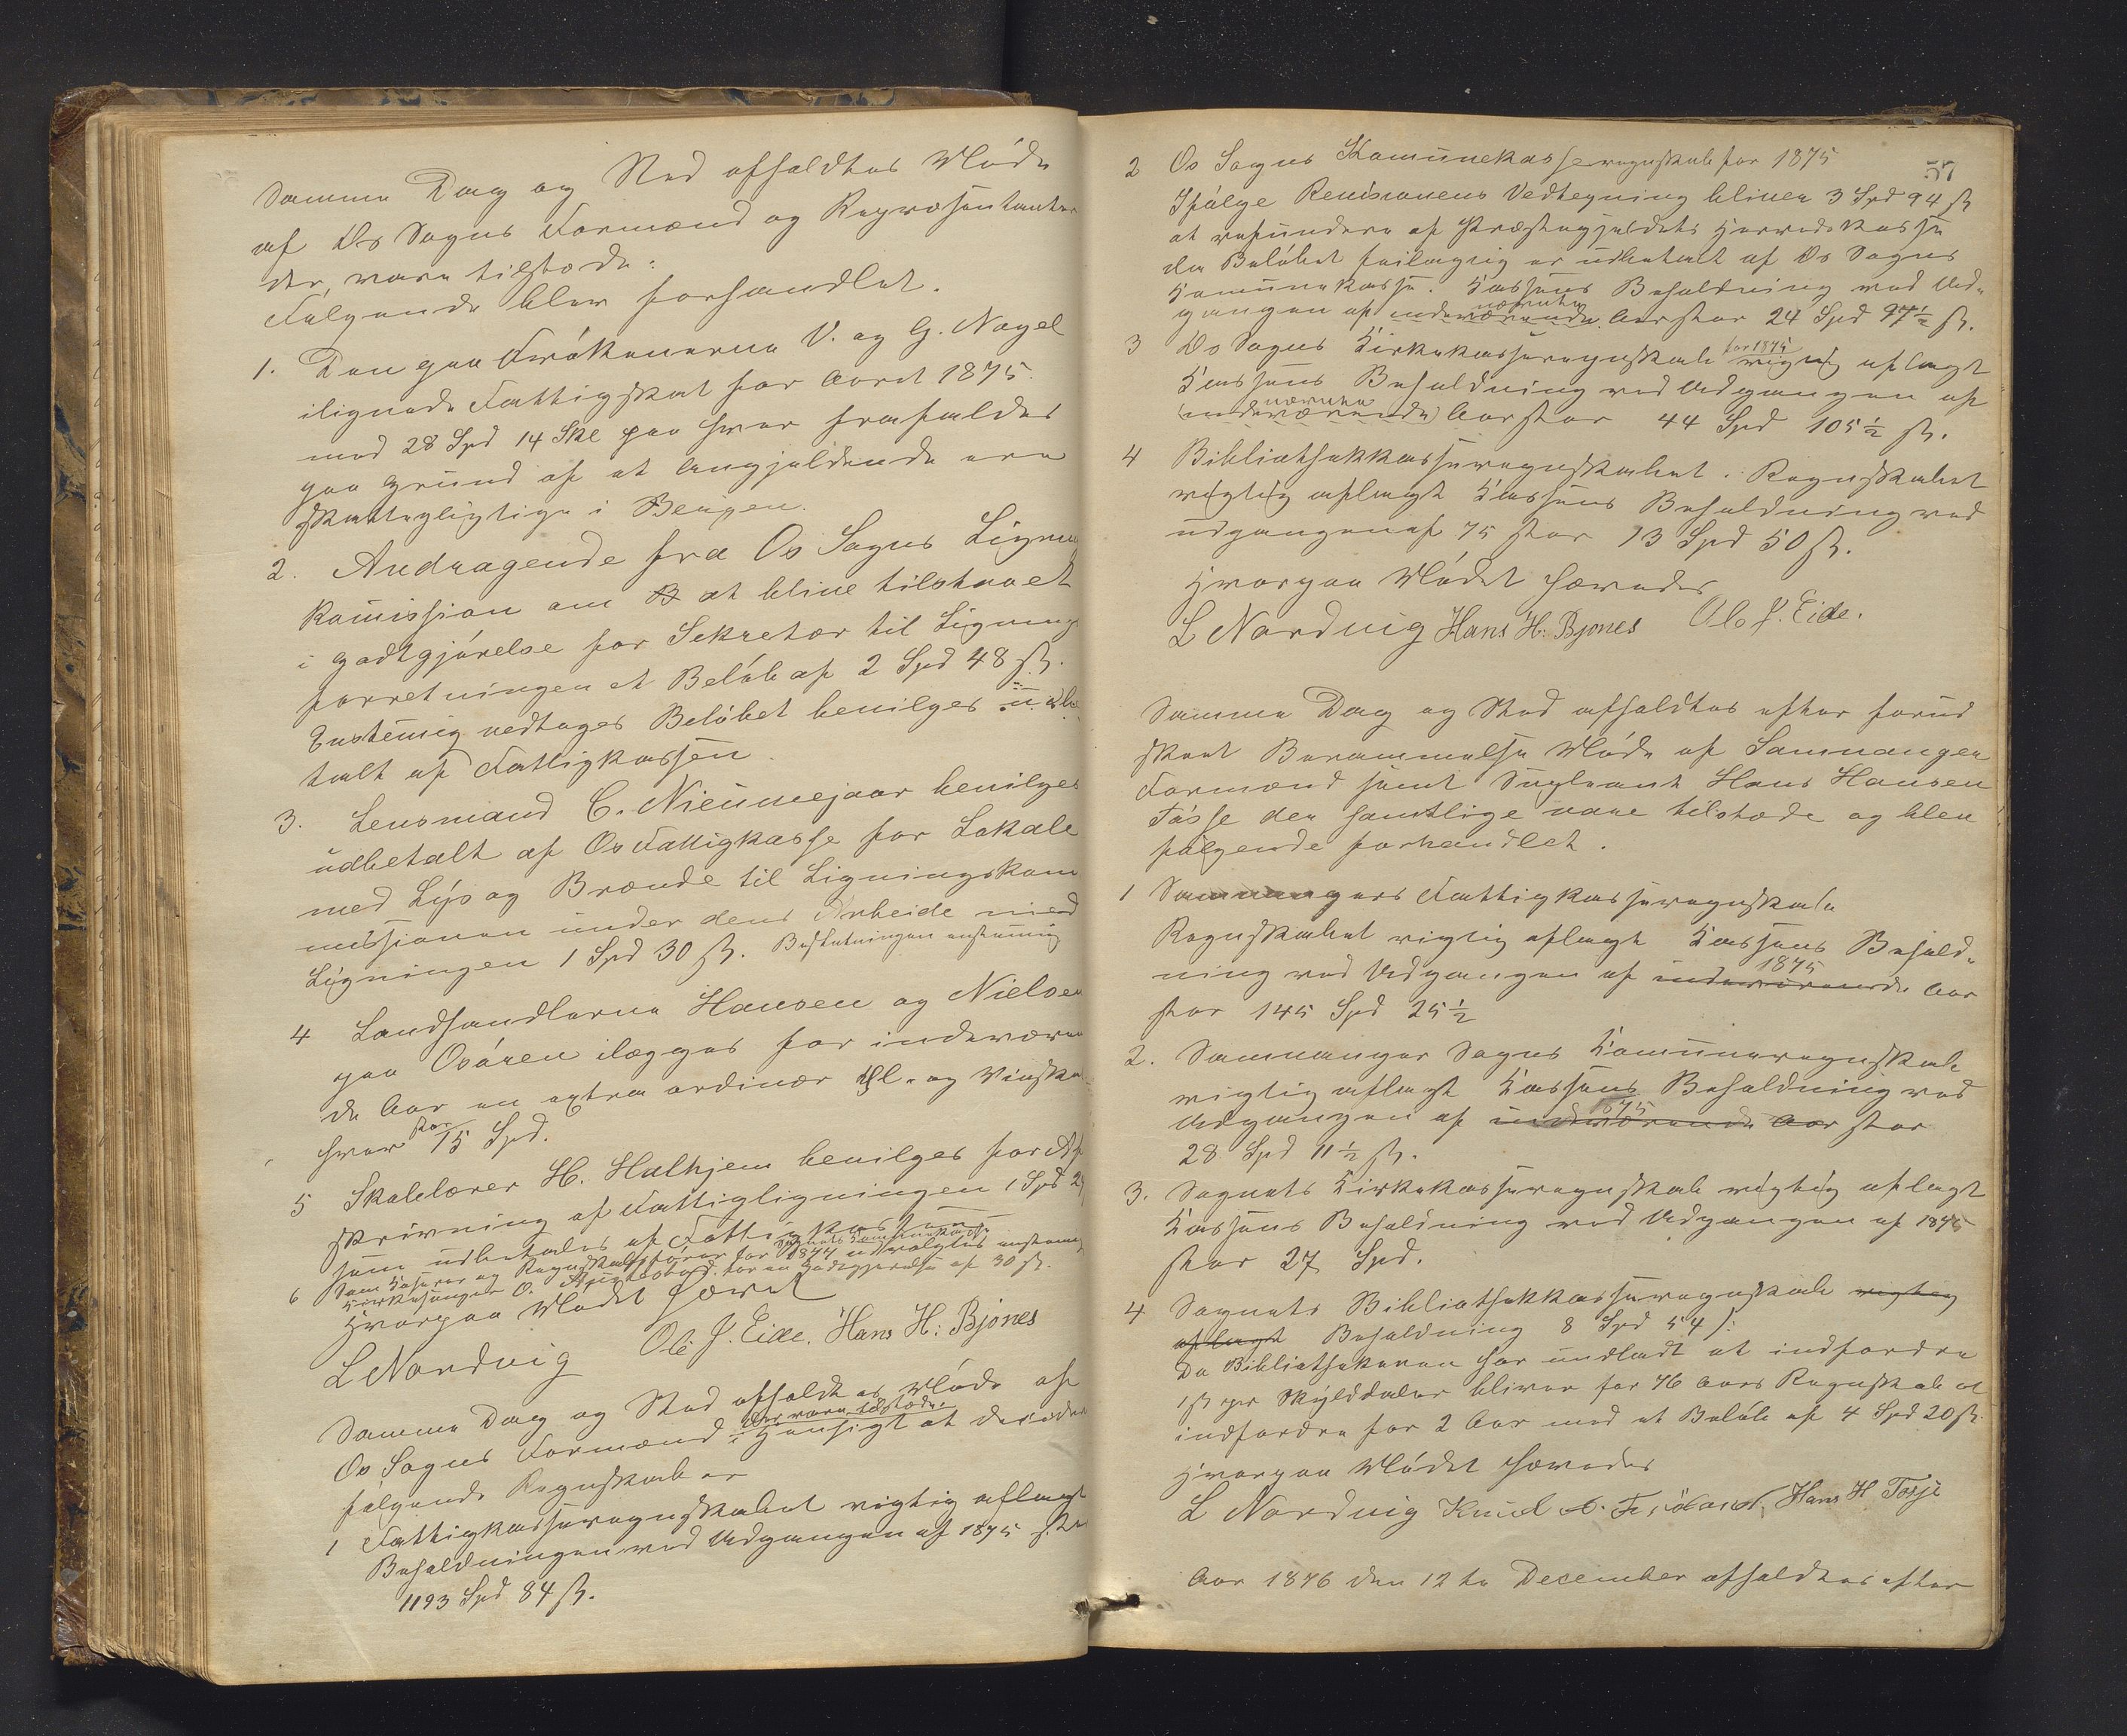 Samme Dag og Sted afholdtes Møde
af Os Sogns Formænd og Repræsentanter
der, vare tilstede:
Følgende blev forhandlet.
1. Den paa Frøkenerne V. og G. Nagel
ilignede Fattigskat for Aaret 1875.
med 28 Spd 14 Sk paa hver frafaldes
paa Grund af at Angjeldende ere
skattepligtige i Bergen.
2. Andragende fra Os Sogns Lignings
Komission om B at blive tilstaaet
i godtgjørelse for Sekretær til Lignings
forretningen et Beløb af 2 Spd 48 ß.
Enstemig vedtages Beløbet bevilges udbe
talt af Fattigkassen.
3. Lensmand C. Nieumejaar bevilges
udbetalt af Os Fattigkasse for Lokale
med Lys og Brænde til Ligningskom
missionen under dens Arbeide med
Ligningen 1 Spd 30 ß. Beslutningen enstemig
4 Landhandlerne Hansen og Nielsen
paa Osøren ilægges for indeværen
de Aar en extra ordinær Øl- og Vinskat
hver stor 15 Spd.
5 Skolelærer H. Halhjem bevilges for Af
skrivning af Fattigligningen 1 Spd 24
som udbetales af Fattigkassen
6 Som Kaserer og Regnskabsfører for Sognets Kommunekasse 1877 udvalgtes enstemig
Kirkesanger O. for en Godtgjørelse af 30 ß.
Hvorpaa Mødet hævet
L Nordvig Ole J. Eide. Hans H: Bjønes
Samme Dag og Sted afholdtes Møde af
Os Sogns Formænd der vare tilstede. i Hensigt at decidere
følgende Regnskaber
1 Fattigkasseregnskabet rigtig aflagt
Beholdningen ved Udgangen af 1875 stor
1193 Spd 84 ß.
57
2 Os Sogns Kommunekasseregnskab for 1875
Ifølge Revisionens Vedtegning bliver 3 Spd 94 ß
at refundere af Præstegjeldets Herredskasse
da Beløbet feilagtig er udbetalt af Os Sogns
Komunekasse. Kassens Beholdning ved Ud-
gangen af indeværende nævnte Aar stor 24 Spd 97½ ß.
3 Os Sogns Kirkekasseregnskab for 1875 rigtig aflagt
Kassens Beholdning ved Udgangen af
(indeværende) nævnte Aar stor 44 Spd 105½ ß.
4 Bibliothekkasseregnskabet. Regnskabet
rigtig aflagt Kassens Beholdning ved
udgangen af 75 stor 13 Spd 50 ß.
Hvorpaa Mødet hævedes
L Nordvig Hans H: Bjønes Ole J. Eide.
Samme Dag og Sted afholdtes efter forud
skeet Berammelse Møde af Samnanger
Formænd samt Supleant Hans Hansen
Tøsse der samtlige vare tilstede og blev
følgende forhandlet.
1 Samnangers Fattigkasseregnskab
Regnskabet rigtig aflagt Kassens Behold-
ning ved Udgangen af indeværende 1875 Aar
stor 145 Spd 25½
2. Samnanger Sogns Komuneregnskab
rigtig aflagt Kassens Beholdning ved
Udgangen af indeværende Aar 1875 stor
28 Spd 11½ ß.
3. Sognets Kirkekasseregnskab rigtig aflagt
Kassens Beholdning ved Udgangen af 1875
stor 27 Spd.
4 Sognets Bibliothekkasseregnskab rigtig
aflagt Beholdning 8 Spd 54 ß:
Da Bibliothekaren har undladt at indfordre
1 ß per Skylddaler bliver for 76 Aars Regnskab at
indfordre for 2 Aar med et Beløb af 4 Spd 20 ß.
Hvorpaa Mødet hævedes
L Nordvig Knud Hans H Tøsje
Aar 1876 den 12te December afholdtes efter